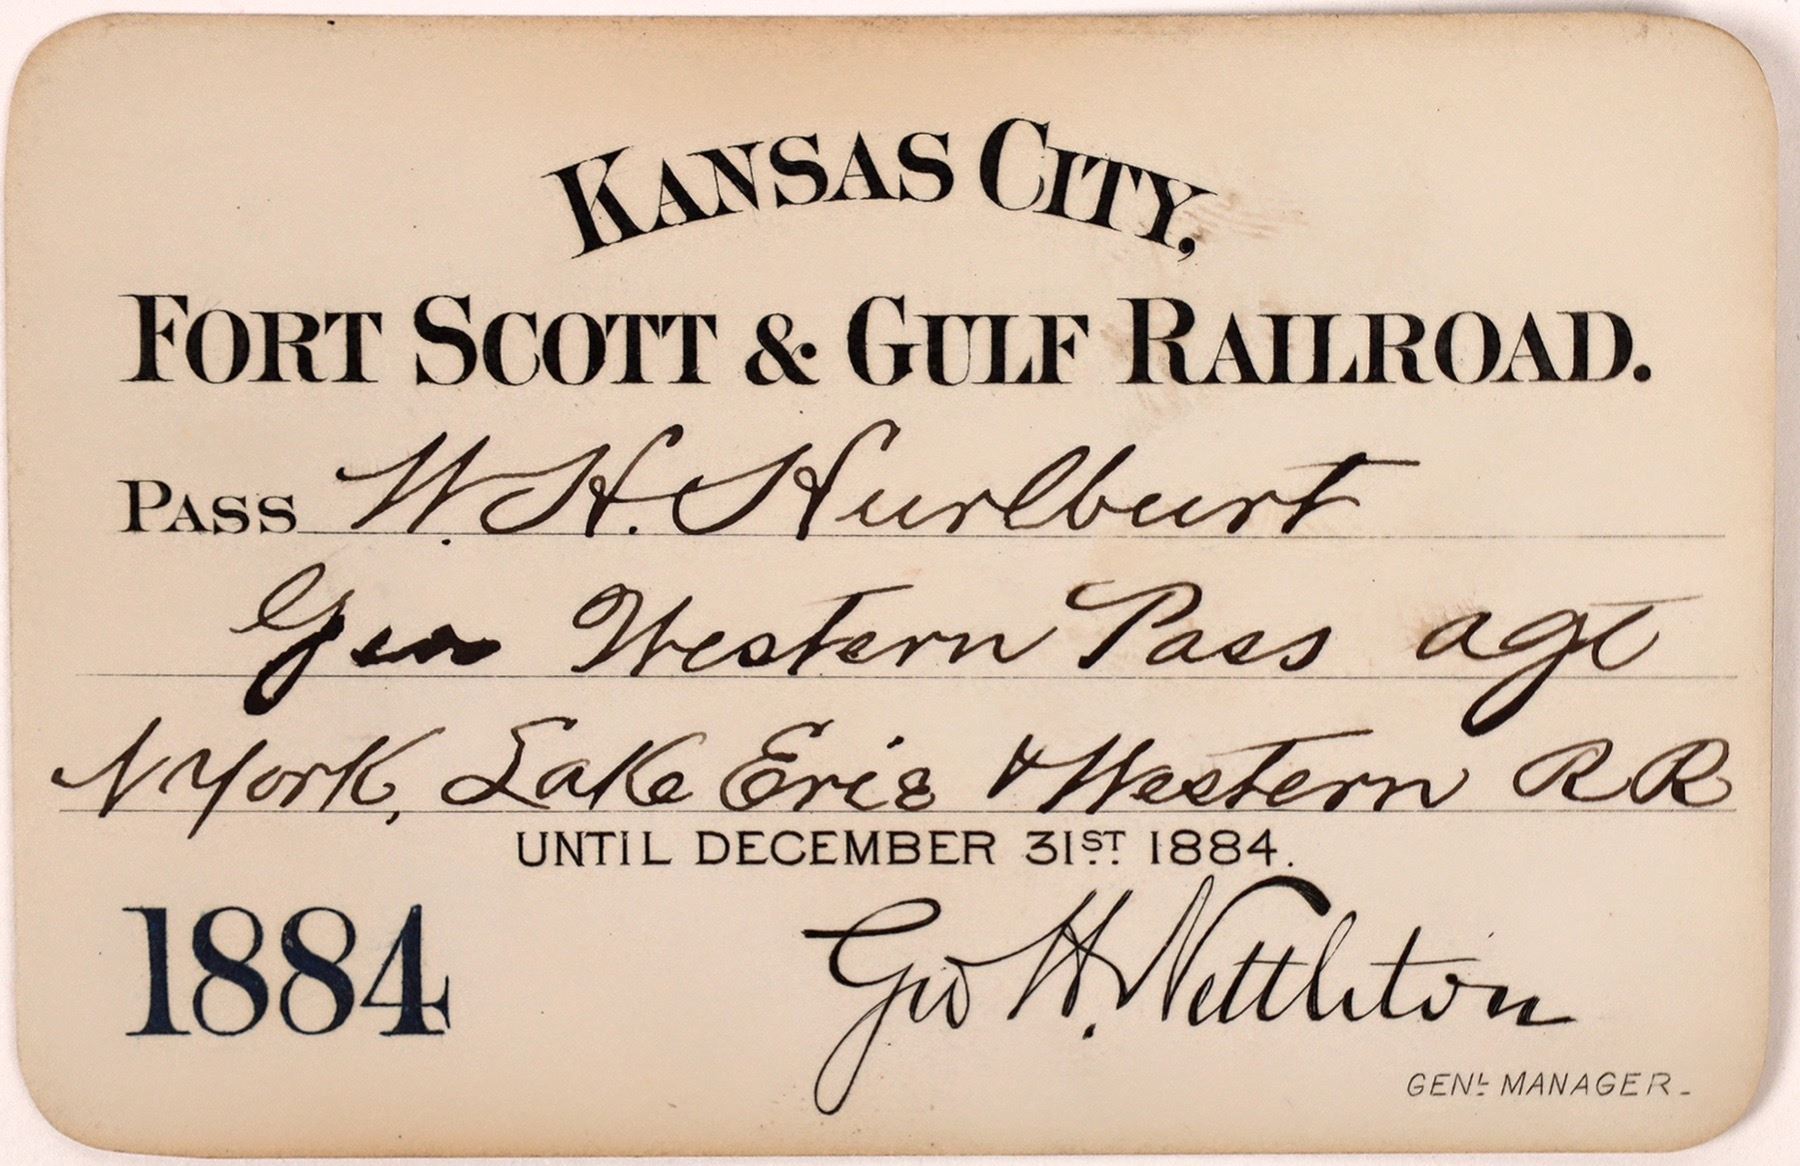 KANSAS CITY,
FORT SCOTT & GULF RAILROAD.
PASS W. H. Hurlburt
Gen Western Pass agt
N York, Lake Erie & Western RR
UNTIL DECEMBER 31ST 1884.
1884
Geo H. Nettleton
GENL MANAGER.